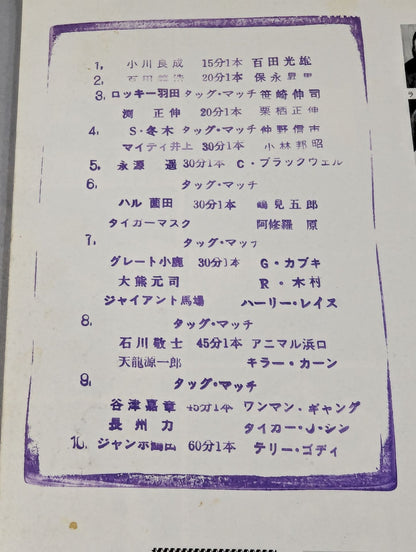 1, 小川良成 15分1本 百田光雄
2, 20分1本 保永
3, ロッキー羽田 タッグ・マッチ 笹崎伸司
渕 正伸 20分1本 栗栖正伸
4, S・冬木 タッグ・マッチ 仲野信市
マイティ井上 30分1本 小林邦昭
5, 永源 遥 30分1本 C・ブラックウェル
6, タッグ・マッチ
ハル薗田 30分1本 鶴見五郎
タイガーマスク 阿修羅 原
7, タッグ・マッチ
グレート小鹿 30分1本 G・カブキ
大熊元司 R・木村
ジャイアント馬場 ハーリー・レイス
8, タッグ・マッチ
石川敬士 45分1本 アニマル浜口
天龍源一郎 キラー・カーン
9, タッグ・マッチ
谷津嘉章 45分1本 ワンマン・ギャング
長州 力 タイガー・J・シン
10, ジャンボ鶴田 60分1本 テリー・ゴディ